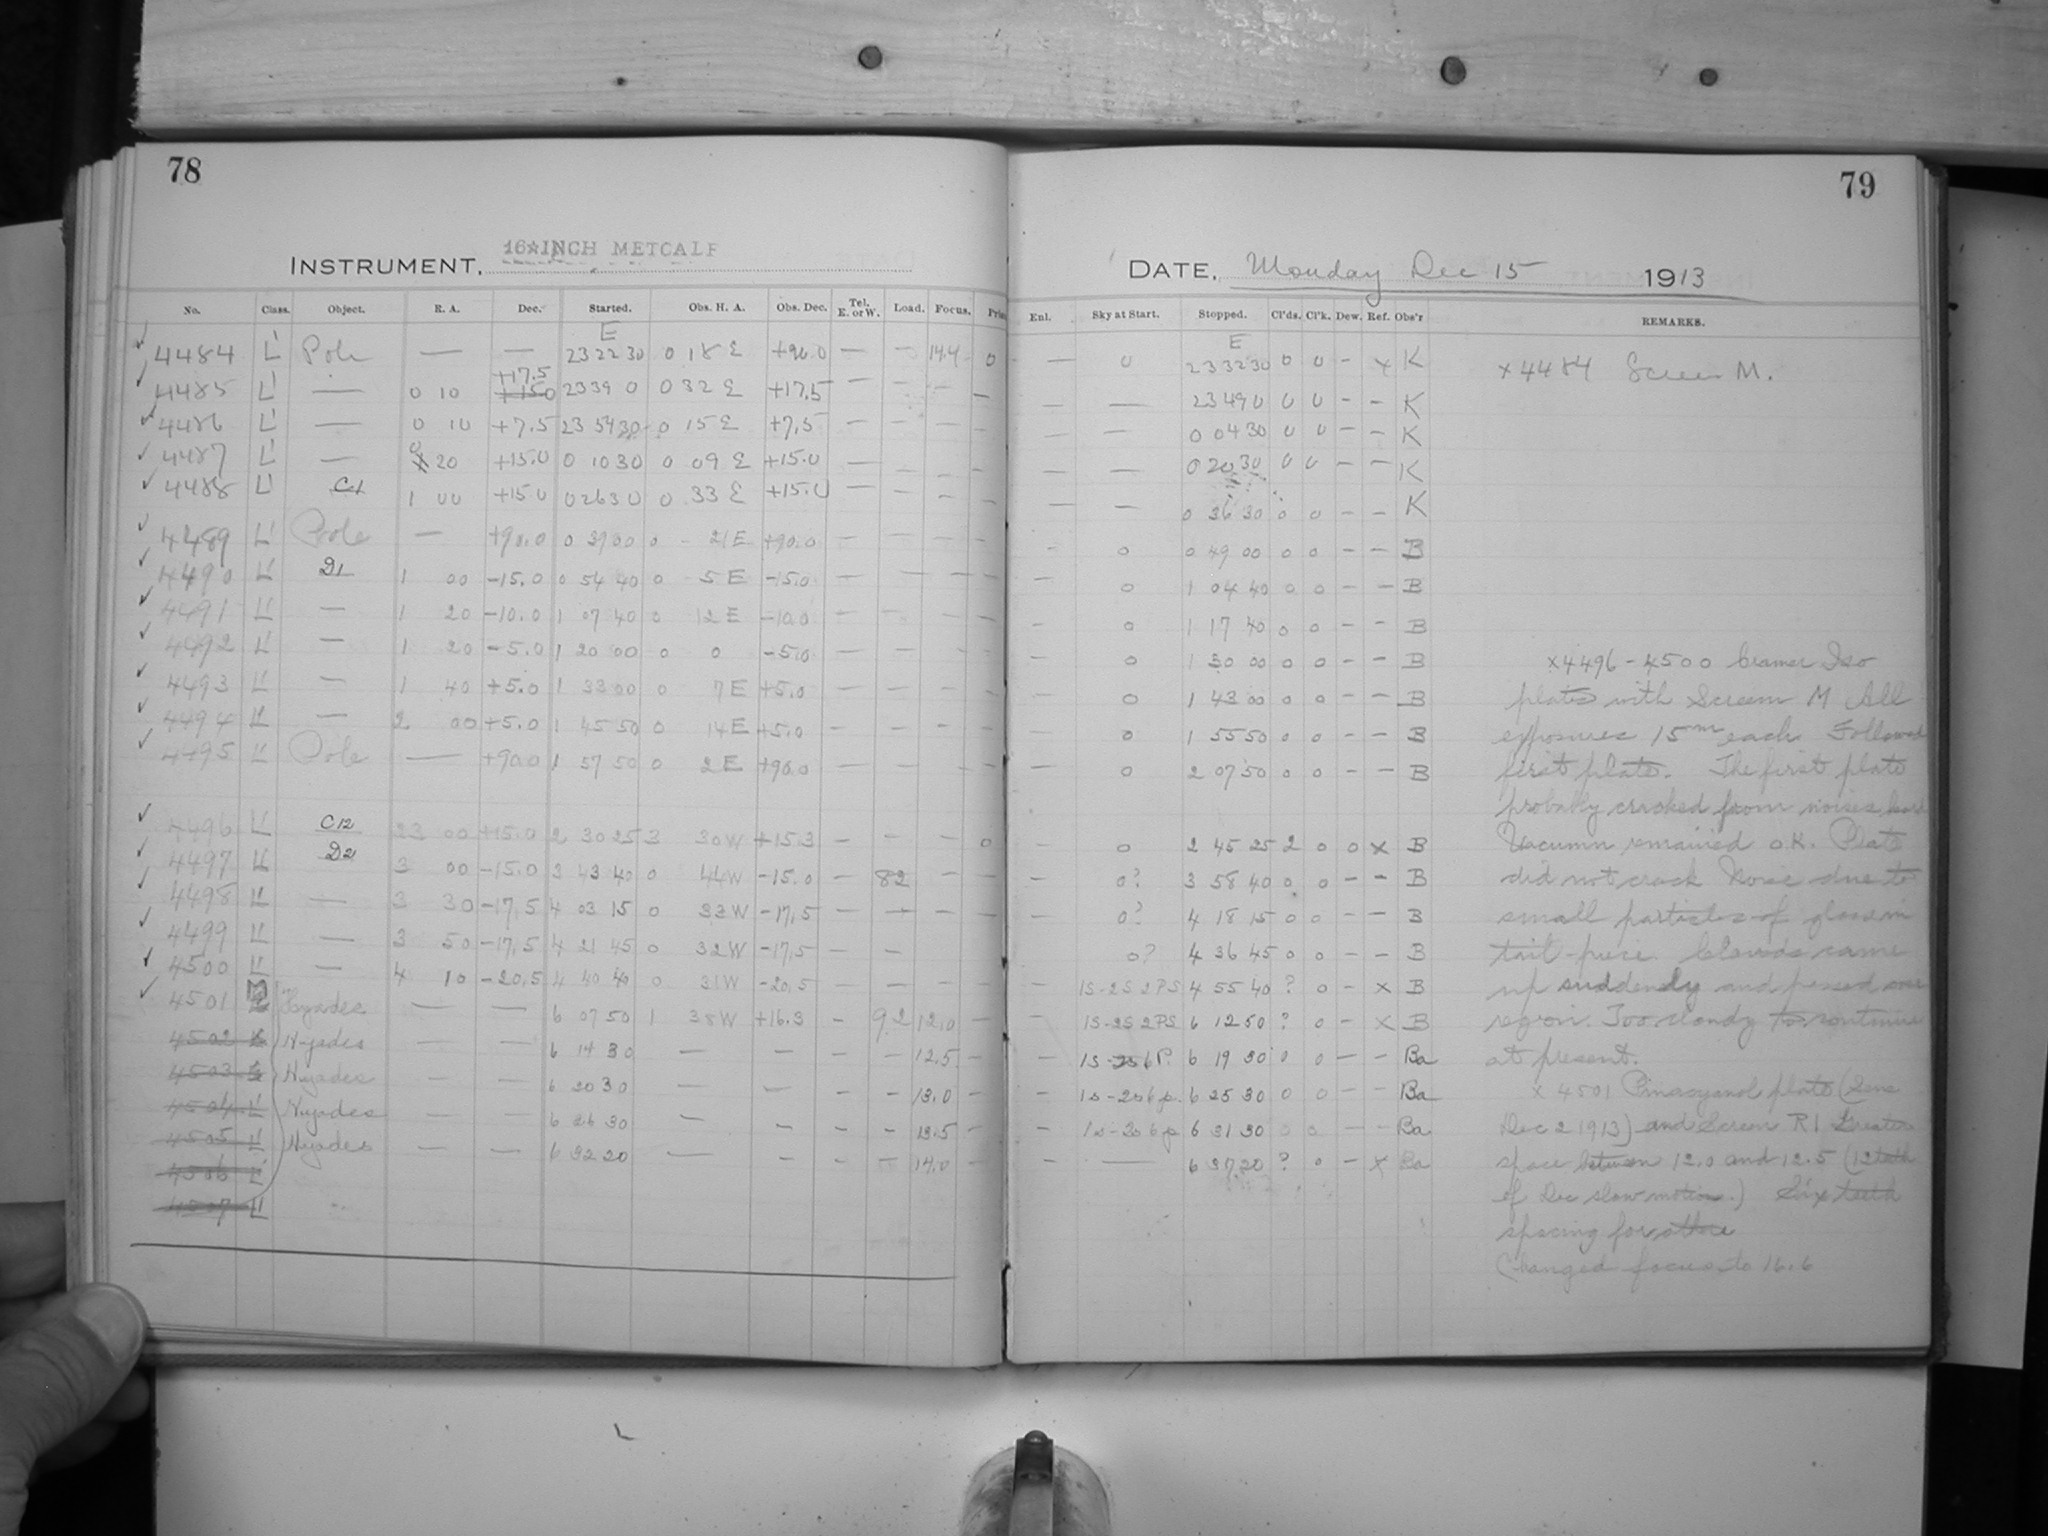 78
INSTRUMENT, 16☆INCH METCALF
No. Class. Object. R. A. Dec. Started. Obs. H. A. Obs. Dec. Tel. E. or W. Load. Focus.
E
4484 L' Pole — — 23 22 30 0 18 E +90.0 — — 14.4 0
+17.5
4485 L' — 0 10 +15.0 23 39 0 0 32 E +17.5 — — — —
4486 L' — 0 10 +7.5 23 54 30 0 15 E +7.5 — — — —
4487 L' — 0 20 +15.0 0 10 30 0 09 E +15.0 — — — —
4488 L' C1 1 00 +15.0 0 26 30 0 33 E +15.0 — — — —
4489 L' Pole — +90.0 0 39 00 0 - 21 E +90.0 — — — —
4490 L' D1 1 00 -15.0 0 54 40 0 5 E -15.0 — — — —
4491 L' — 1 20 -10.0 1 07 40 0 12 E -10.0 — — — —
4492 L' — 1 20 -5.0 1 20 00 0 0 -5.0 — — — —
4493 L' — 1 40 +5.0 1 33 00 0 7 E +5.0 — — — —
4494 L' — 2 00 +5.0 1 45 50 0 14 E +5.0 — — — —
4495 L' Pole — +90.0 1 57 50 0 2 E +90.0 — — — —
4496 L' C12 23 00 +15.0 2 30 25 3 30 W +15.3 — — — 0
4497 L' D21 3 00 -15.0 3 43 40 0 44 W -15.0 — 82 — —
4498 L' — 3 30 -17.5 4 03 15 0 33 W -17.5 — — — —
4499 L' — 3 50 -17.5 4 21 45 0 32 W -17.5 — —
4500 L' — 4 10 -20.5 4 40 40 0 31 W -20.5 — — — —
4501 Hyades — — 6 07 50 1 38 W +16.3 - 92 12.0 —
4502 Hyades — — 6 14 30 — — — — 12.5 —
4503 Hyades — — 6 20 30 — — — — 13.0 —
4504 L' Hyades — — 6 26 30 — — — — 13.5 —
4505 L' Hyades — — 6 32 20 — — — — 14.0 —
4506 L'
4507 L'
79
DATE, Monday Dec 15 1913
Enl. Sky at Start. Stopped. Cl'ds. Cl'k. Dew. Ref. Obs'r REMARKS.
E
— 0 23 32 30 0 0 - x K x 4484 Screen M.
— — 23 49 0 0 0 - - K
— — 0 04 30 0 0 - - K
— — 0 20 30 0 0 - - K
— — 0 36 30 0 0 - - K
- 0 0 49 00 0 0 - - B
— 0 1 04 40 0 0 - - B
— 0 1 17 40 0 0 - - B
— 0 1 30 00 0 0 - - B
— 0 1 43 00 0 0 - - B
— 0 1 55 50 0 0 - - B
— 0 2 07 50 0 0 - - B
— 0 2 45 25 2 0 0 x B
— 0? 3 58 40 0 0 - - B
— 0? 4 18 15 0 0 - - B
0? 4 36 45 0 0 - - B
— 1S-2S 2PS 4 55 40 ? 0 - x B
— 1S-2S 2PS 6 12 50 ? 0 - x B
— 6 19 30 0 0 - - Ba
— 1s-2s 6p. 6 25 30 0 0 - - Ba
— 1s-2s 6p 6 31 30 0 0 - - Ba
— — 6 37 20 ? 0 - x Ba
x4496-4500 Cramer Iso
plates with Screen M All
exposures 15m each. Followed
first plate. The first plate
probably cracked from noises heard
Vacumn remained O.K. Plate
did not crack Noise due to
small particles of glass in
tail-piece. Clouds came
up suddenly and passed over
region. Too cloudy to continue
at present.
x 4501 Pinacyanol plate (Sens
Dec 2 1913) and Screen R1 Greater
space between 12.0 and 12.5 (12 teeth
of Dec slow motion.) Six teeth
spacing for others
Changed focus to 16.6